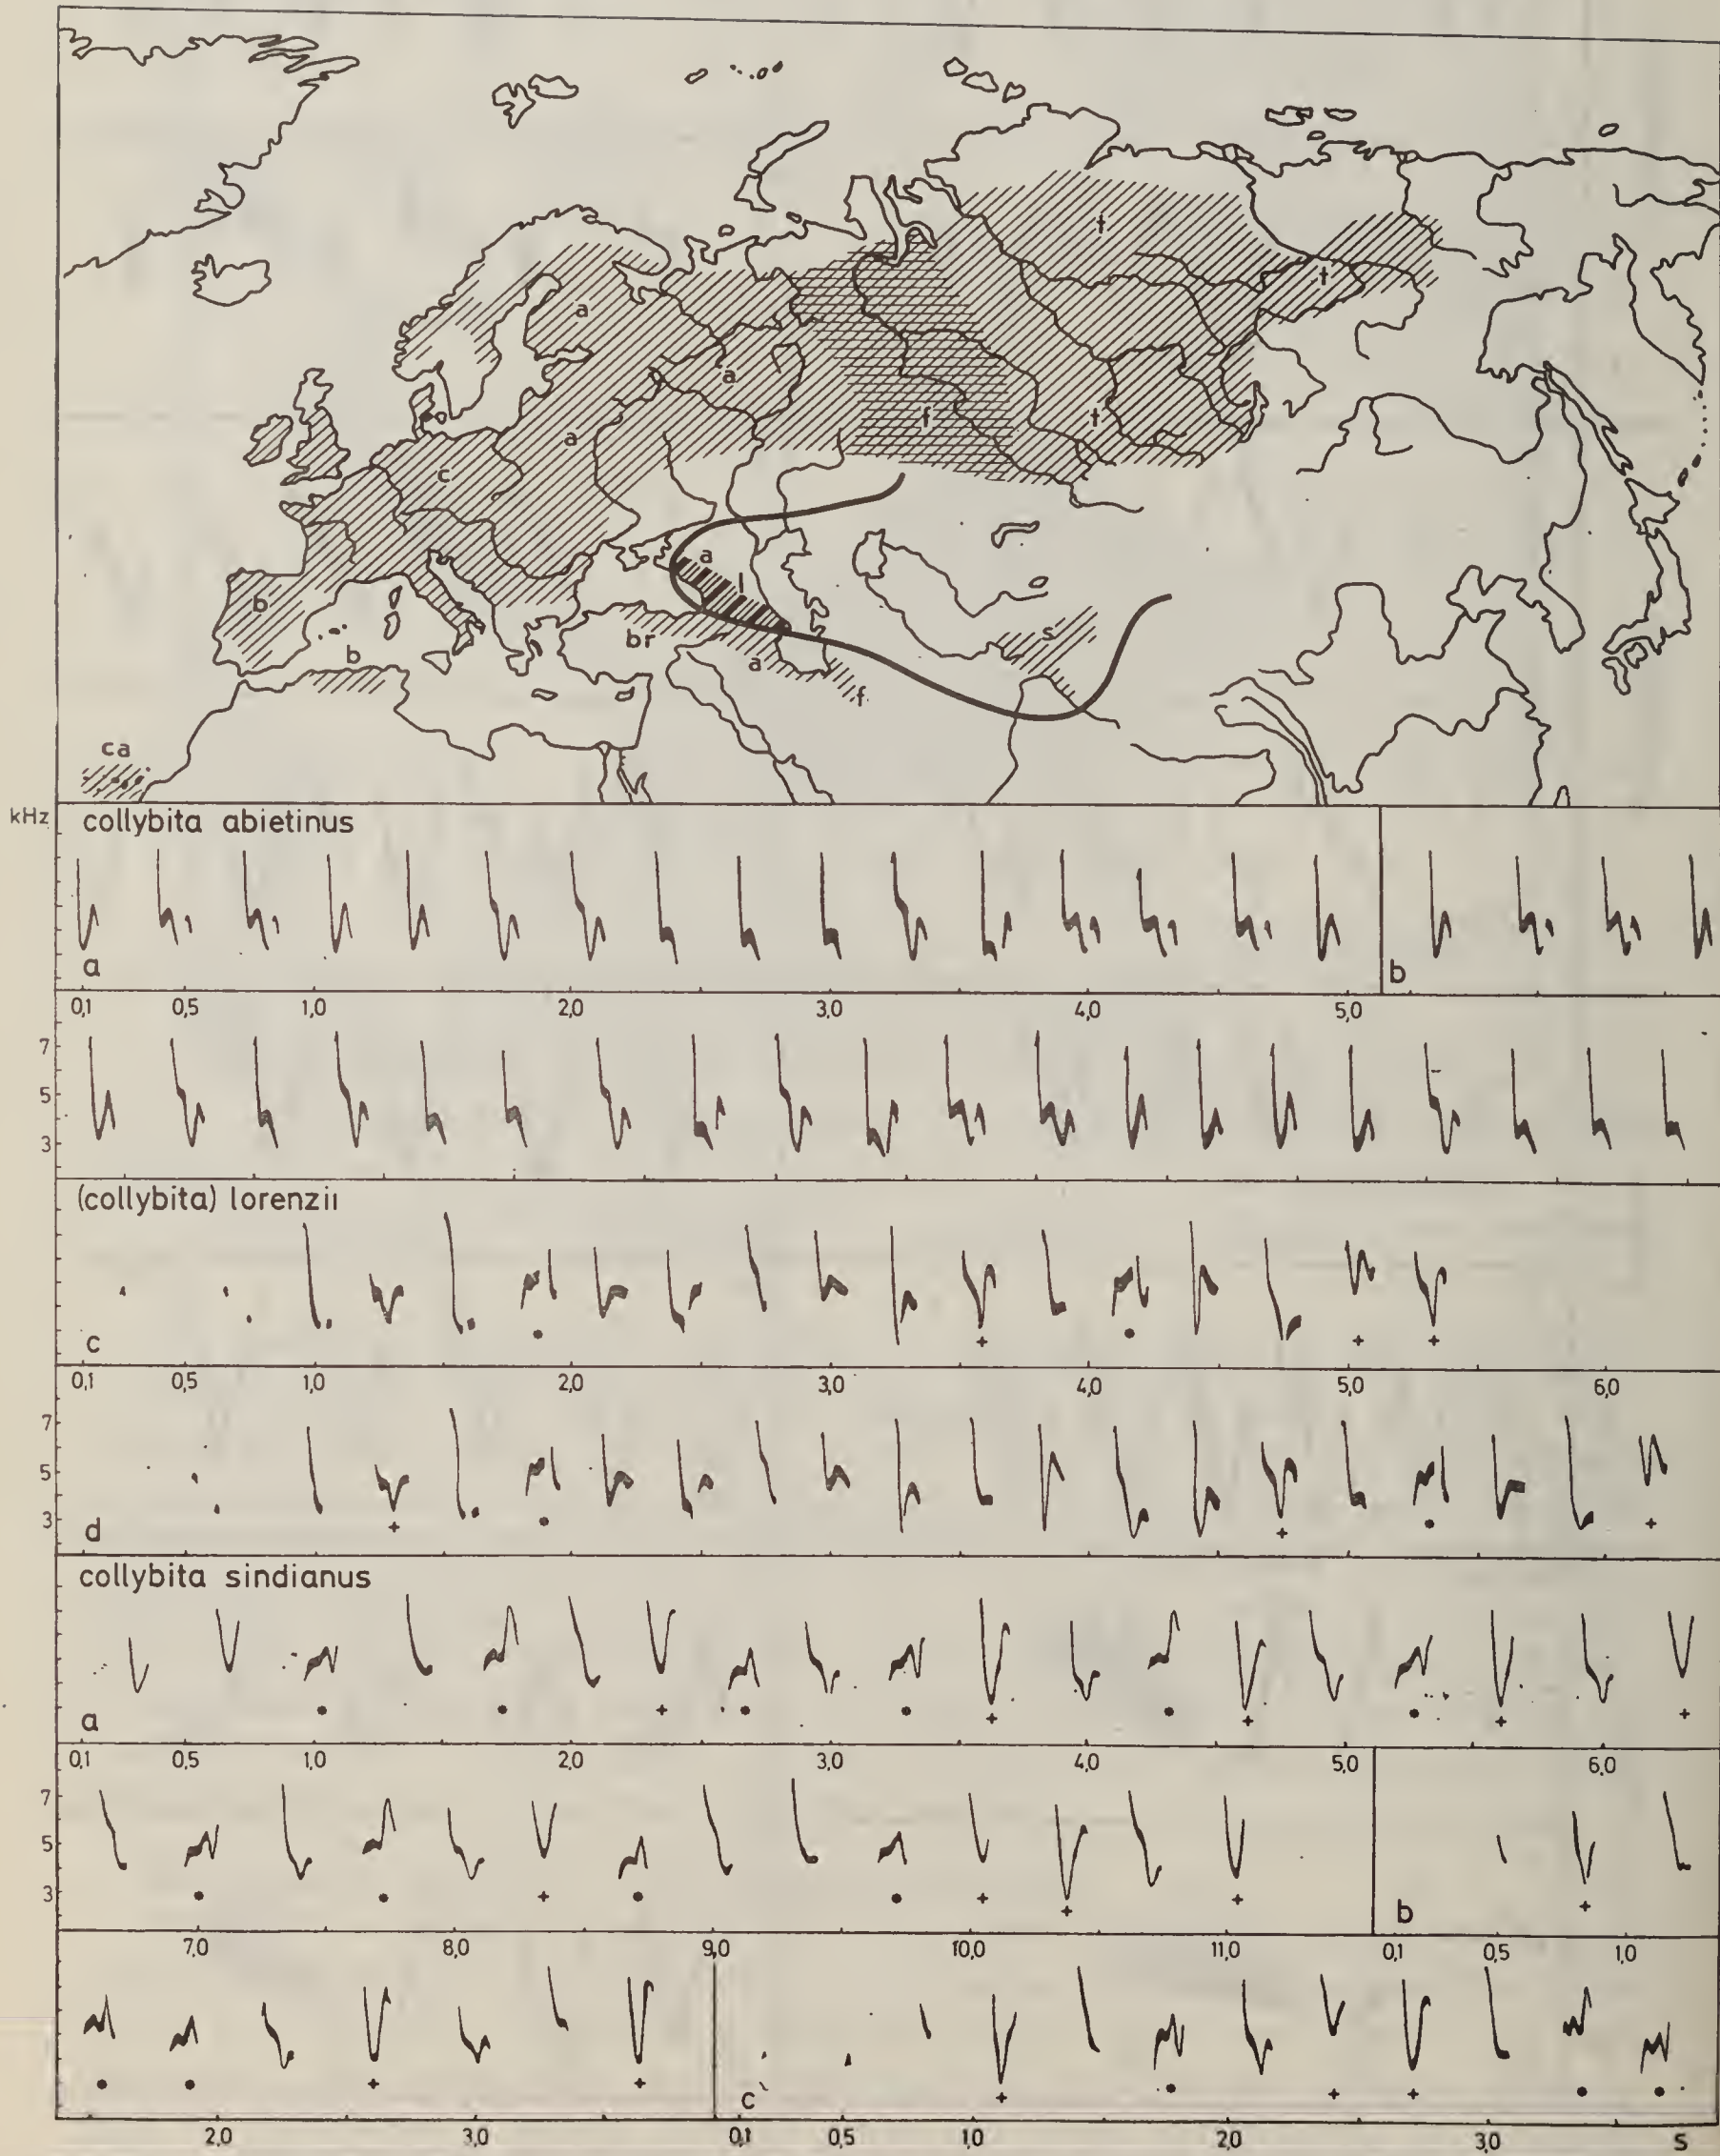 f
f
a
a
f
f
a
c
a
l
b
s
br
b
a
f
ca
kHz
collybita abietinus
a
b
0,1 0,5 1,0 2,0 3,0 4,0 5,0
7
5
3
(collybita) lorenzii
c
0,1 0,5 1,0 2,0 3,0 4,0 5,0 6,0
7
5
3
d
collybita sindianus
a
0,1 0,5 1,0 2,0 3,0 4,0 5,0 6,0
7
5
3
b
7,0 8,0 9,0 10,0 11,0 0,1 0,5 1,0
c
2,0 3,0 0,1 0,5 1,0 2,0 3,0 s